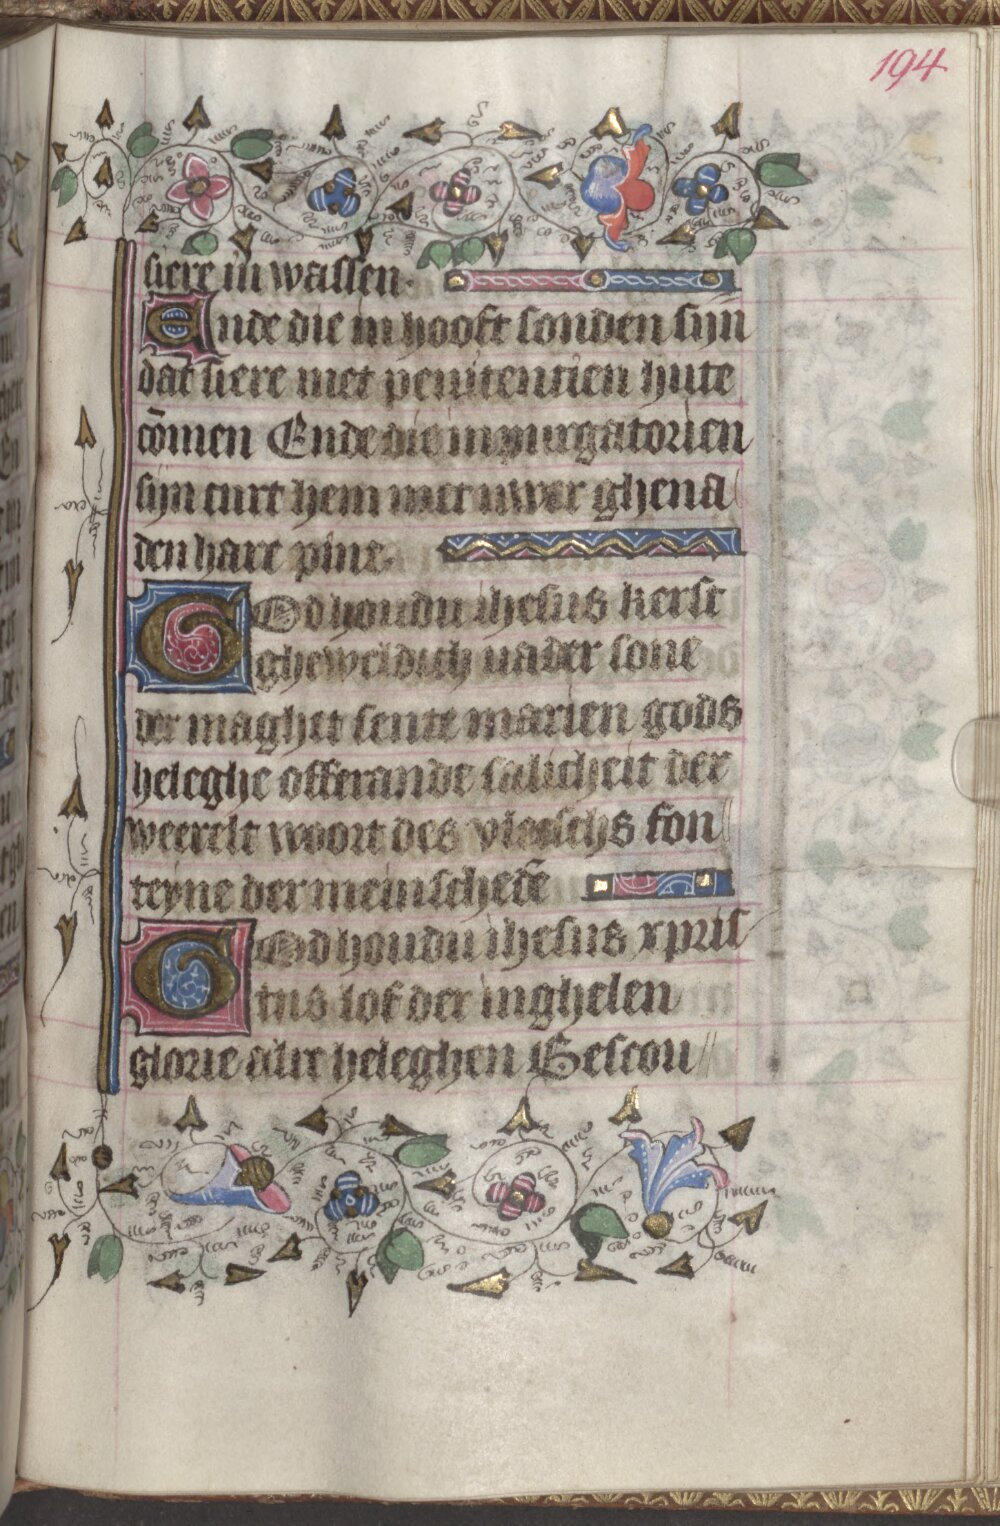 194
siere in wassen.
Ende die in hooft sonden sijn
dat siere met penitentien hute
cōmen Ende die in purgatorien
sijn curt hem met uwer ghena
den hare pine.
God houdu ihesus kerst
gheweldich uader sone
der maghet sente marien gods
heleghe offerande salicheit der
weerelt woort des vleeschs fon
teyne der meinschedē
God houdu ihesus xpris
tus lof der inghelen
glorie alre heleghen Gescou